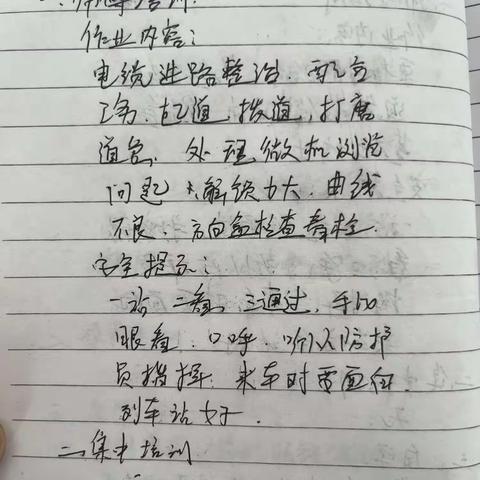 作业内容：
电缆进路整治、配合
工务、起道、拨道、打磨
道岔、处理微机浏览
问题、解锁力大、曲线
不良、方向盒检查螺栓.
安全提示：
一站、二看、三通过、手比
眼看、口呼、听从防护
员指挥、来车时要面向
列车站好.
二、集中培训